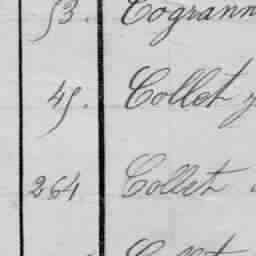 53. Cogrann
45. Collet
264 Collet
Collet